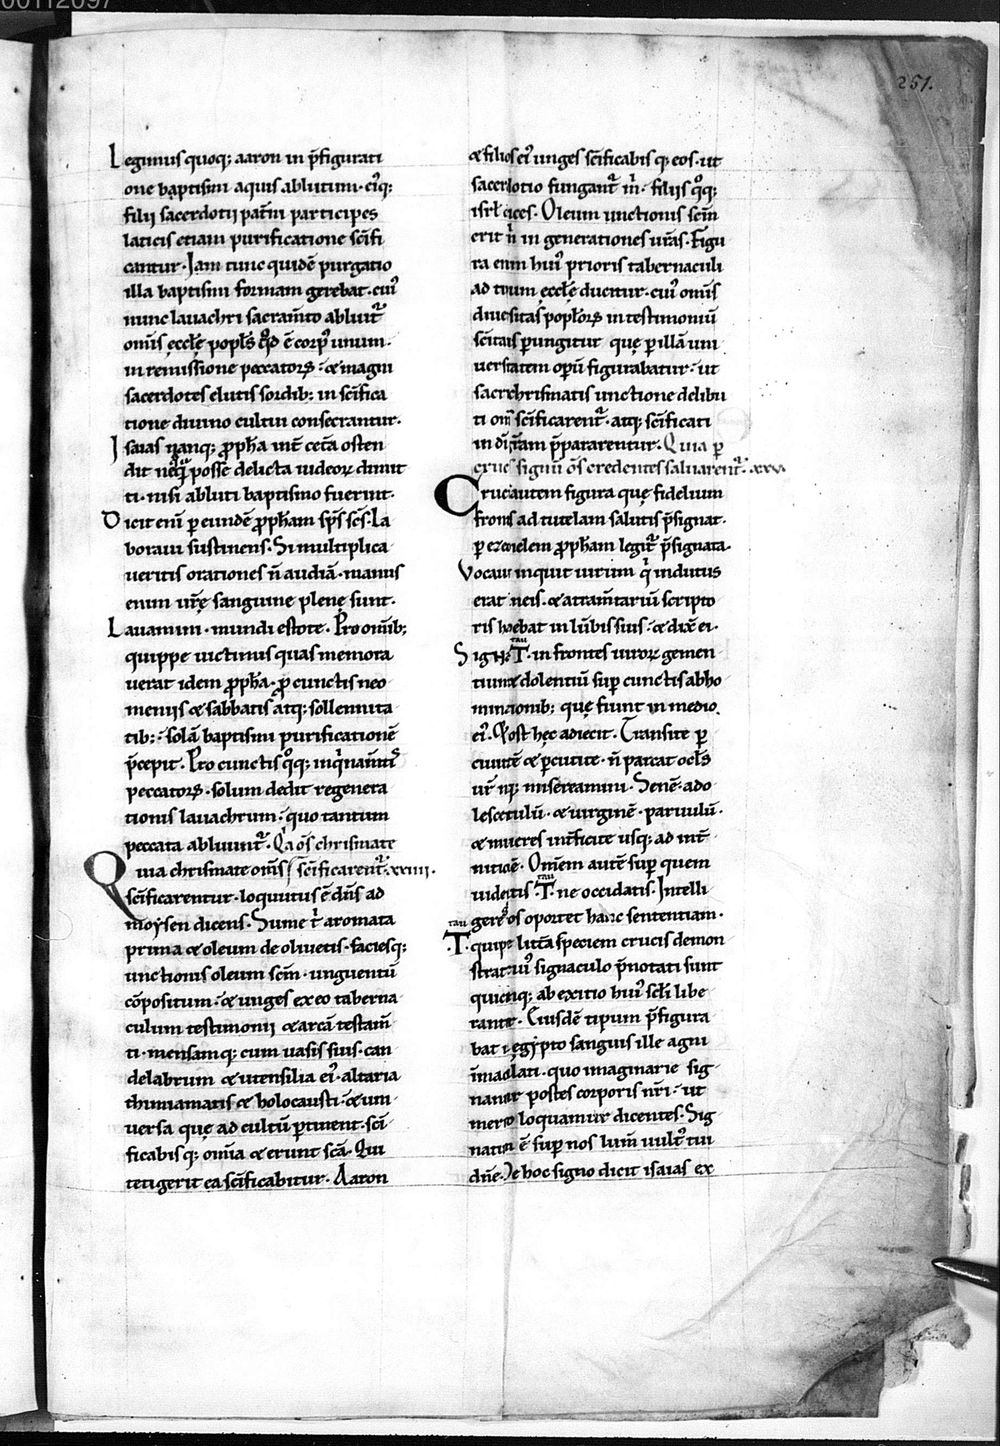 00112097
251.
Legimus quoq; aaron in p̄figurati
one baptismi aquis ablutum· ei᷒q;
filii sacerdotii pat̄ni participes
laticis etiam purificatione sc̄ifi
cantur· Jam tunc quidē purgatio
illa baptismi formam gerebat· cui᷒
nunc lauachri sacram̄to abluit᷑
om̄is ęccl̄ę popl̄s qd̄ ē corp᷒ unum·
in remissione peccatorꝝ· & magni
sacerdotes elutis sordib; in sc̄ifica
tione diuino cultui consecrantur·
Jsaias nanq; ꝓph̄a int̄ cet̄a osten
dit posse delicta iudeoꝝ dimit
ti· nisi abluti baptismo fuerint·
Dicit enī ꝑ eundē ꝓph̄am sp̄s sc̄s· La
boraui sustinens· Si multiplica
ueritis orationes n̄ audiā· manus
enim ur̄ę sanguine plenę sunt·
Lauamini· mundi estote· Pro om̄ib;
quippe uictimis quas memora
uerat idem ꝓph̄a· ꝓ cunctis neo
meniis & sabbatis atq; sollennita
tib;· solā baptismi purificationē
p̄cepit· Pro cunctis qͦq;
peccatorꝝ· solum dedit regenera
tionis lauachrum· quo tantum
peccata abluunt᷑· Qa om̄s chrismate
Quia chrismate om̄s sc̄ificarent᷑· xxiiii·
sc̄ificarentur· loquutus ē dn̄s ad
moysen dicens· Sume t̄ aromata
prima & oleum de oliuetis· faciesq;
unctionis oleum sc̄m· unguentū
cōpositum· & unges ex eo taberna
culum testimonii & arcā testam̄
ti· mensamq; cum uasis suis· can
delabrum & utensilia ei᷒· altaria
thimiamatis & holocausti· & uni
uersa quę ad cultū ꝑtinent· sc̄i
ficabisq; om̄ia & erunt sc̄a· Qui
tetigerit ea sc̄ificabitur· Aaron
& filios ei᷒ unges sc̄ificabisq; eos· ut
sacerdotio fungant᷑ m̄· filiis qͦq;
isrl̄ dices· Oleum unctionis sc̄m
erit n̄ in generationes ur̄as· Figu
ra enim hui᷒ prioris tabernaculi
ad ęccl̄ę ducitur· cui᷒ om̄is
diuersitas popl̄oꝝ in testimoniū
sc̄itatis ꝑungitur quę ꝑ illā uni
uersitatem opū figurabatur· ut
sacri chrismatis unctione delibu
ti om̄s sc̄ificarent᷑· atq; sc̄ificati
p̄pararentur· Quia ꝑ
crucis signū om̄s credentes saluarent᷑· xxv·
Crucis autem figura quę fidelium
frontes ad tutelam salutis p̄signat·
ꝑ ezechielem ꝓph̄am legit᷑ p̄signata·
Vocauit inquit uirum qͥ indutus
erat lineis· & atram̄tariū scripto
ris habebat in lūbis suis· & dix̄ ei·
Signa tau T· in frontes uiroꝝ gemen
tium & dolentiū sup̄ cunctis abho
minationib; quę fiunt in medio
ei᷒· Post hęc adiecit· Transite ꝑ
ciuitatē & ꝑcutite· n̄ parcat ocl̄s
ur̄ nq; misereamini· Senē· ado
lescetulū· & uirginē· paruulū·
& mulieres int̄ficite usq; ad int̄
nitionē· Omnem autē sup̄ quem
uideritis tau T· ne occidatis· Intelli
gere nos oportet hanc sententiam·
tau ·T· quippe litt̄a speciem crucis demon
strat· cui᷒ signaculo p̄notati sunt
quicūq; ab exitio hui᷒ scl̄i libe
rantur· Eiusdē tipum p̄figura
bat in egypto sanguis ille agni
īmaculati· quo imaginarie sig
nantur postes corporis nr̄i· ut
merito loquamur dicentes· Sig
natum ē sup̄ nos lum̄ uult᷒ tui
dn̄e· De hoc signo dicit isaias ex